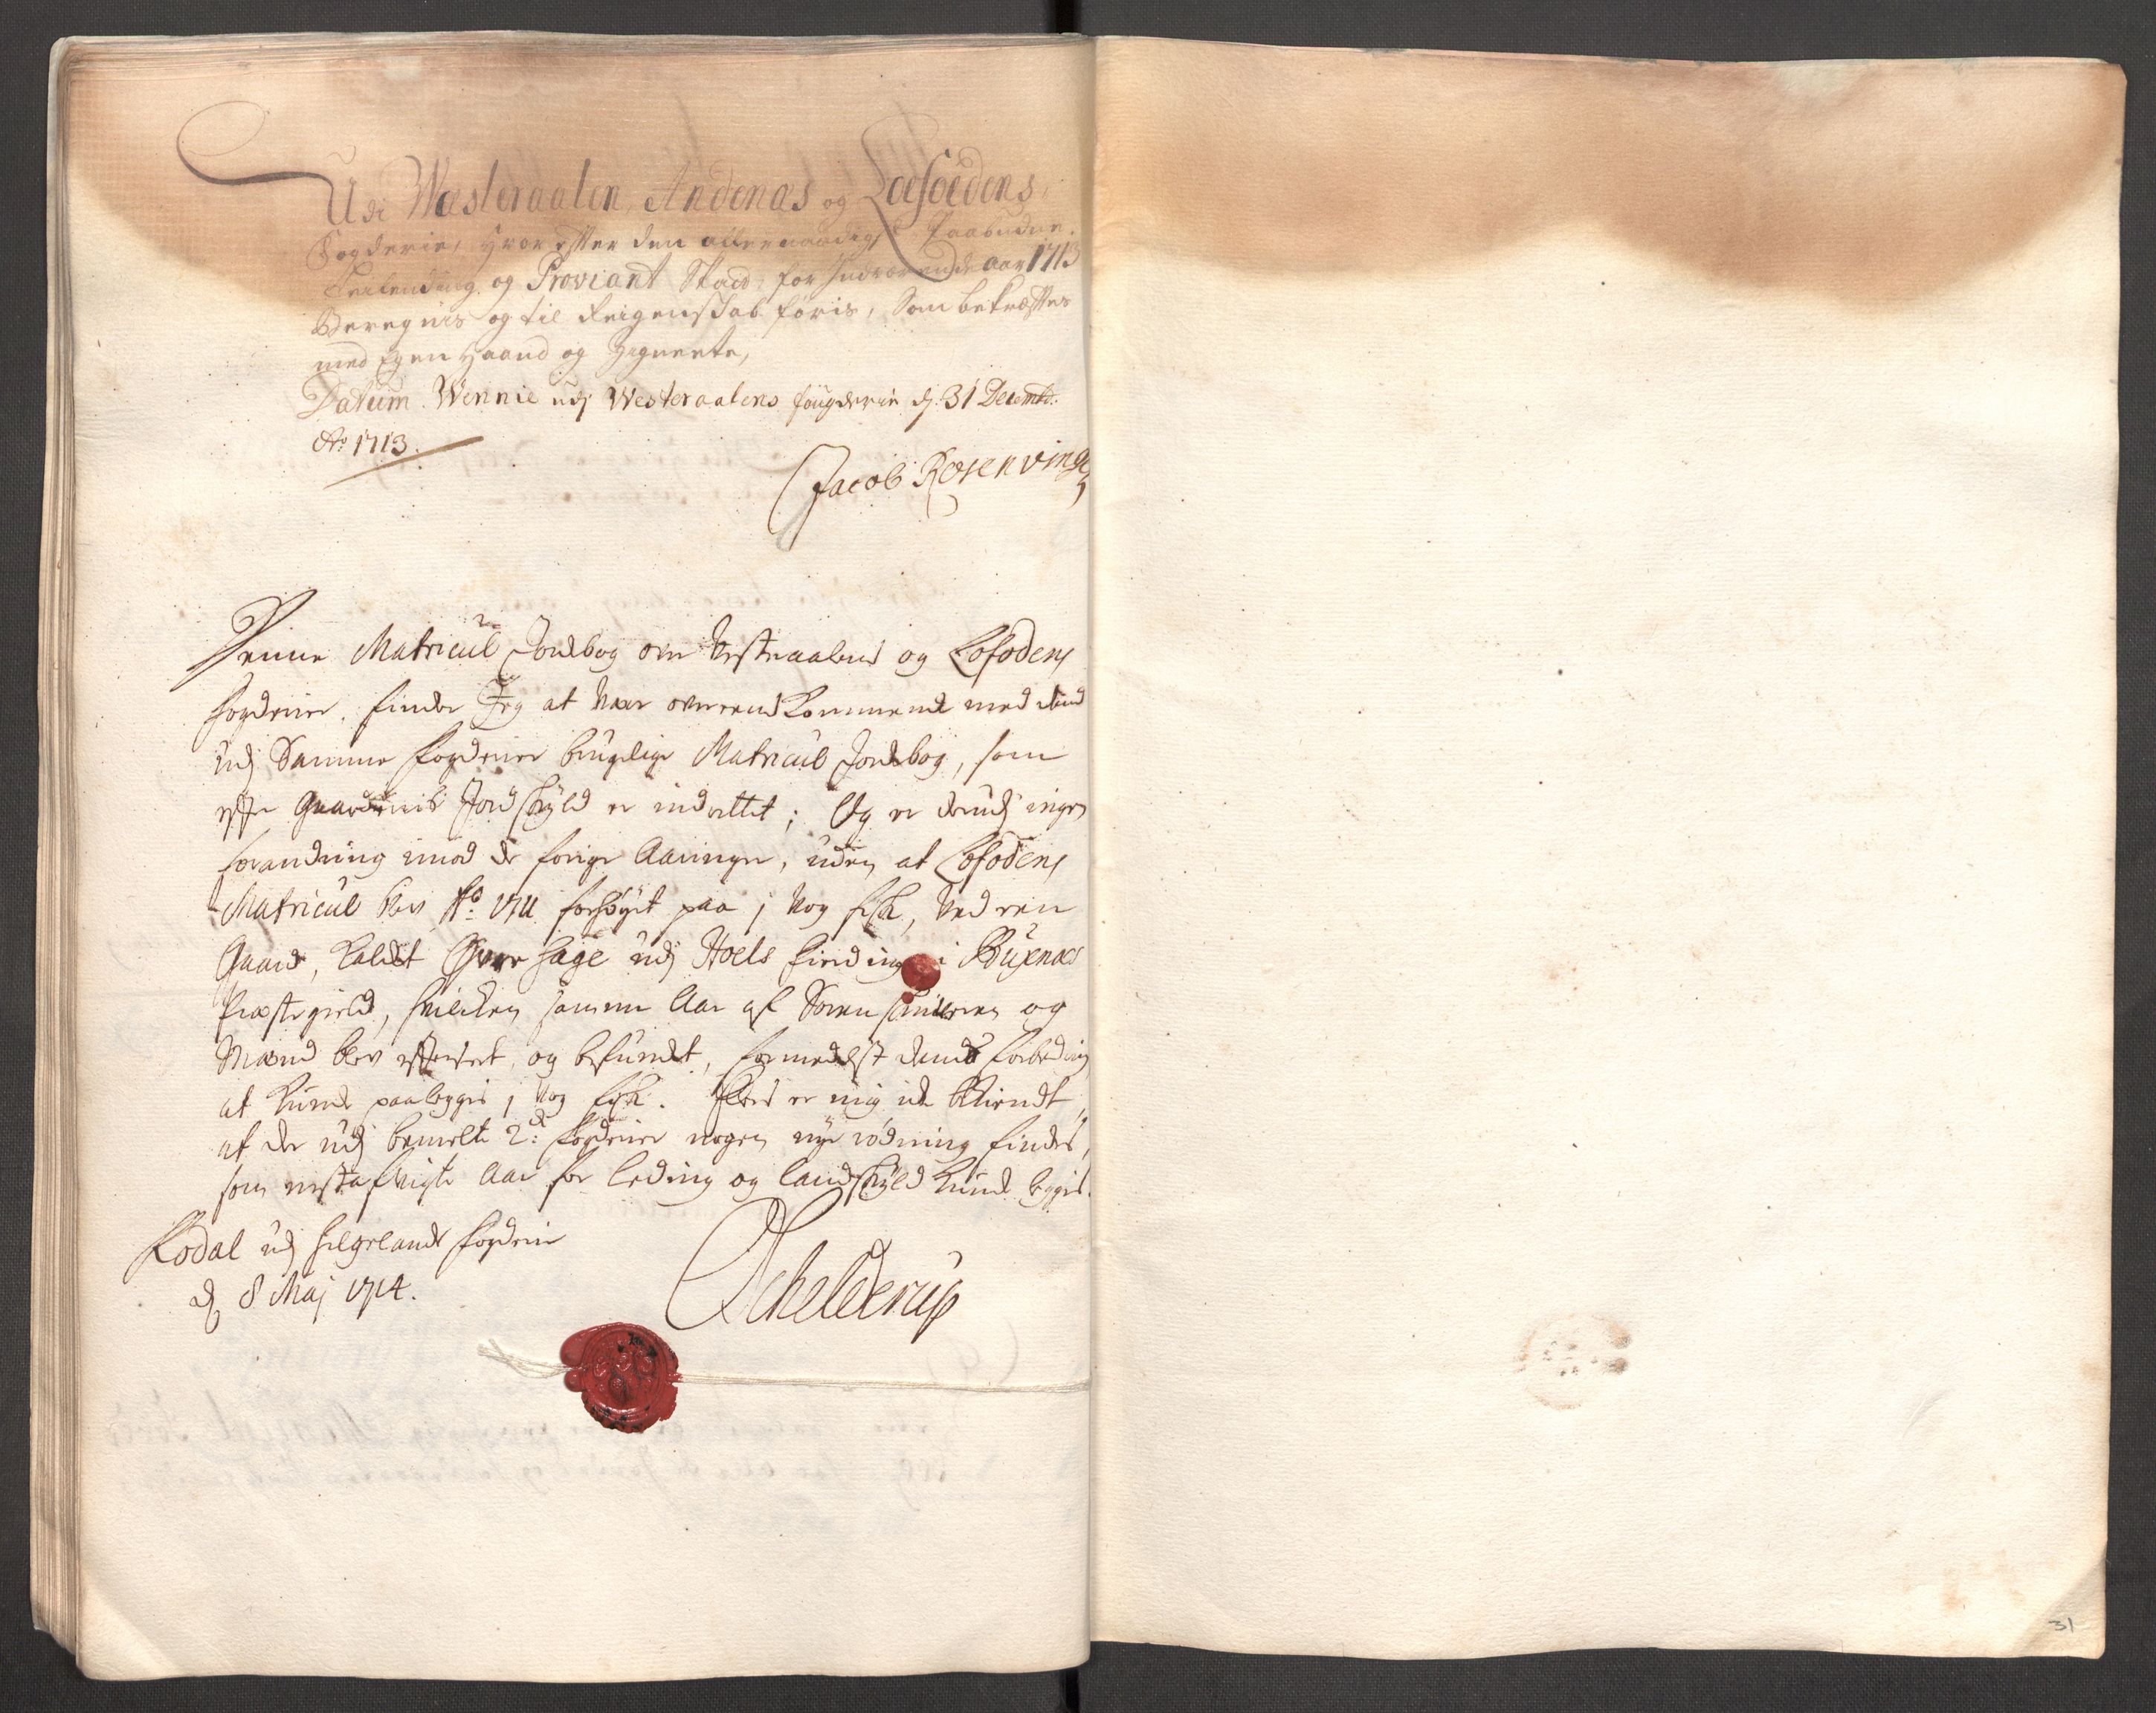 Udi Westeraalen, Andenæs og Loefoedens
Fogderie, hvor efter den allernaadigst Paabudne
og Proviant Skatt for Indeværende Aar 1713
Beregnis og til Reigenskab føris, Som bekræftes
med Egen Haand og Zignete,
Datum Wennie udj Westeraalens fougderie dj 31 Decembr.
Ao. 1713.
Jacob Rosenvinge
Denne Matricul Jordbog over Vesteraalens og Lofodens
fogderier finder Jeg at være overeens kommende med dend
udj Samme fogderier brugelige Matricul Jordbog, som
efter Gaardernis Jordskyld er indrettet; Og er derudj ingen
forandring imod de forige Aaringer, uden at Lofodens
Matricul blev Ao. 1711 forhøyet paa 1 Vog fisk, Ved een
Gaard, kaldet hage udj Hoels fierding i Buxnæs
Præstegield, hvilken samme Aar af Sorenskriveren og
Mænd blev efterseet, og befundet, formedelst dends forbedring
at kunde paaleggis 1 Vog fisk. Ellers er mig icke bekiendt,
at der udj bemelte 2de. fogderier nogen nye rødning findes,
som nestafvigte Aar for leding og landskyld kunde leggis.
Rødal udj Helgelands fogderie
dj 8 Maj 1714.
Schelderup
31